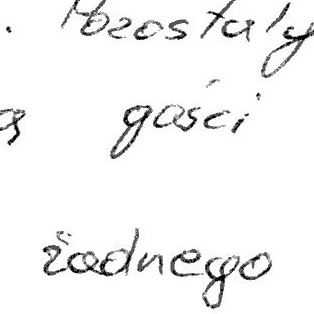 . Pozostały
gości
żadnego